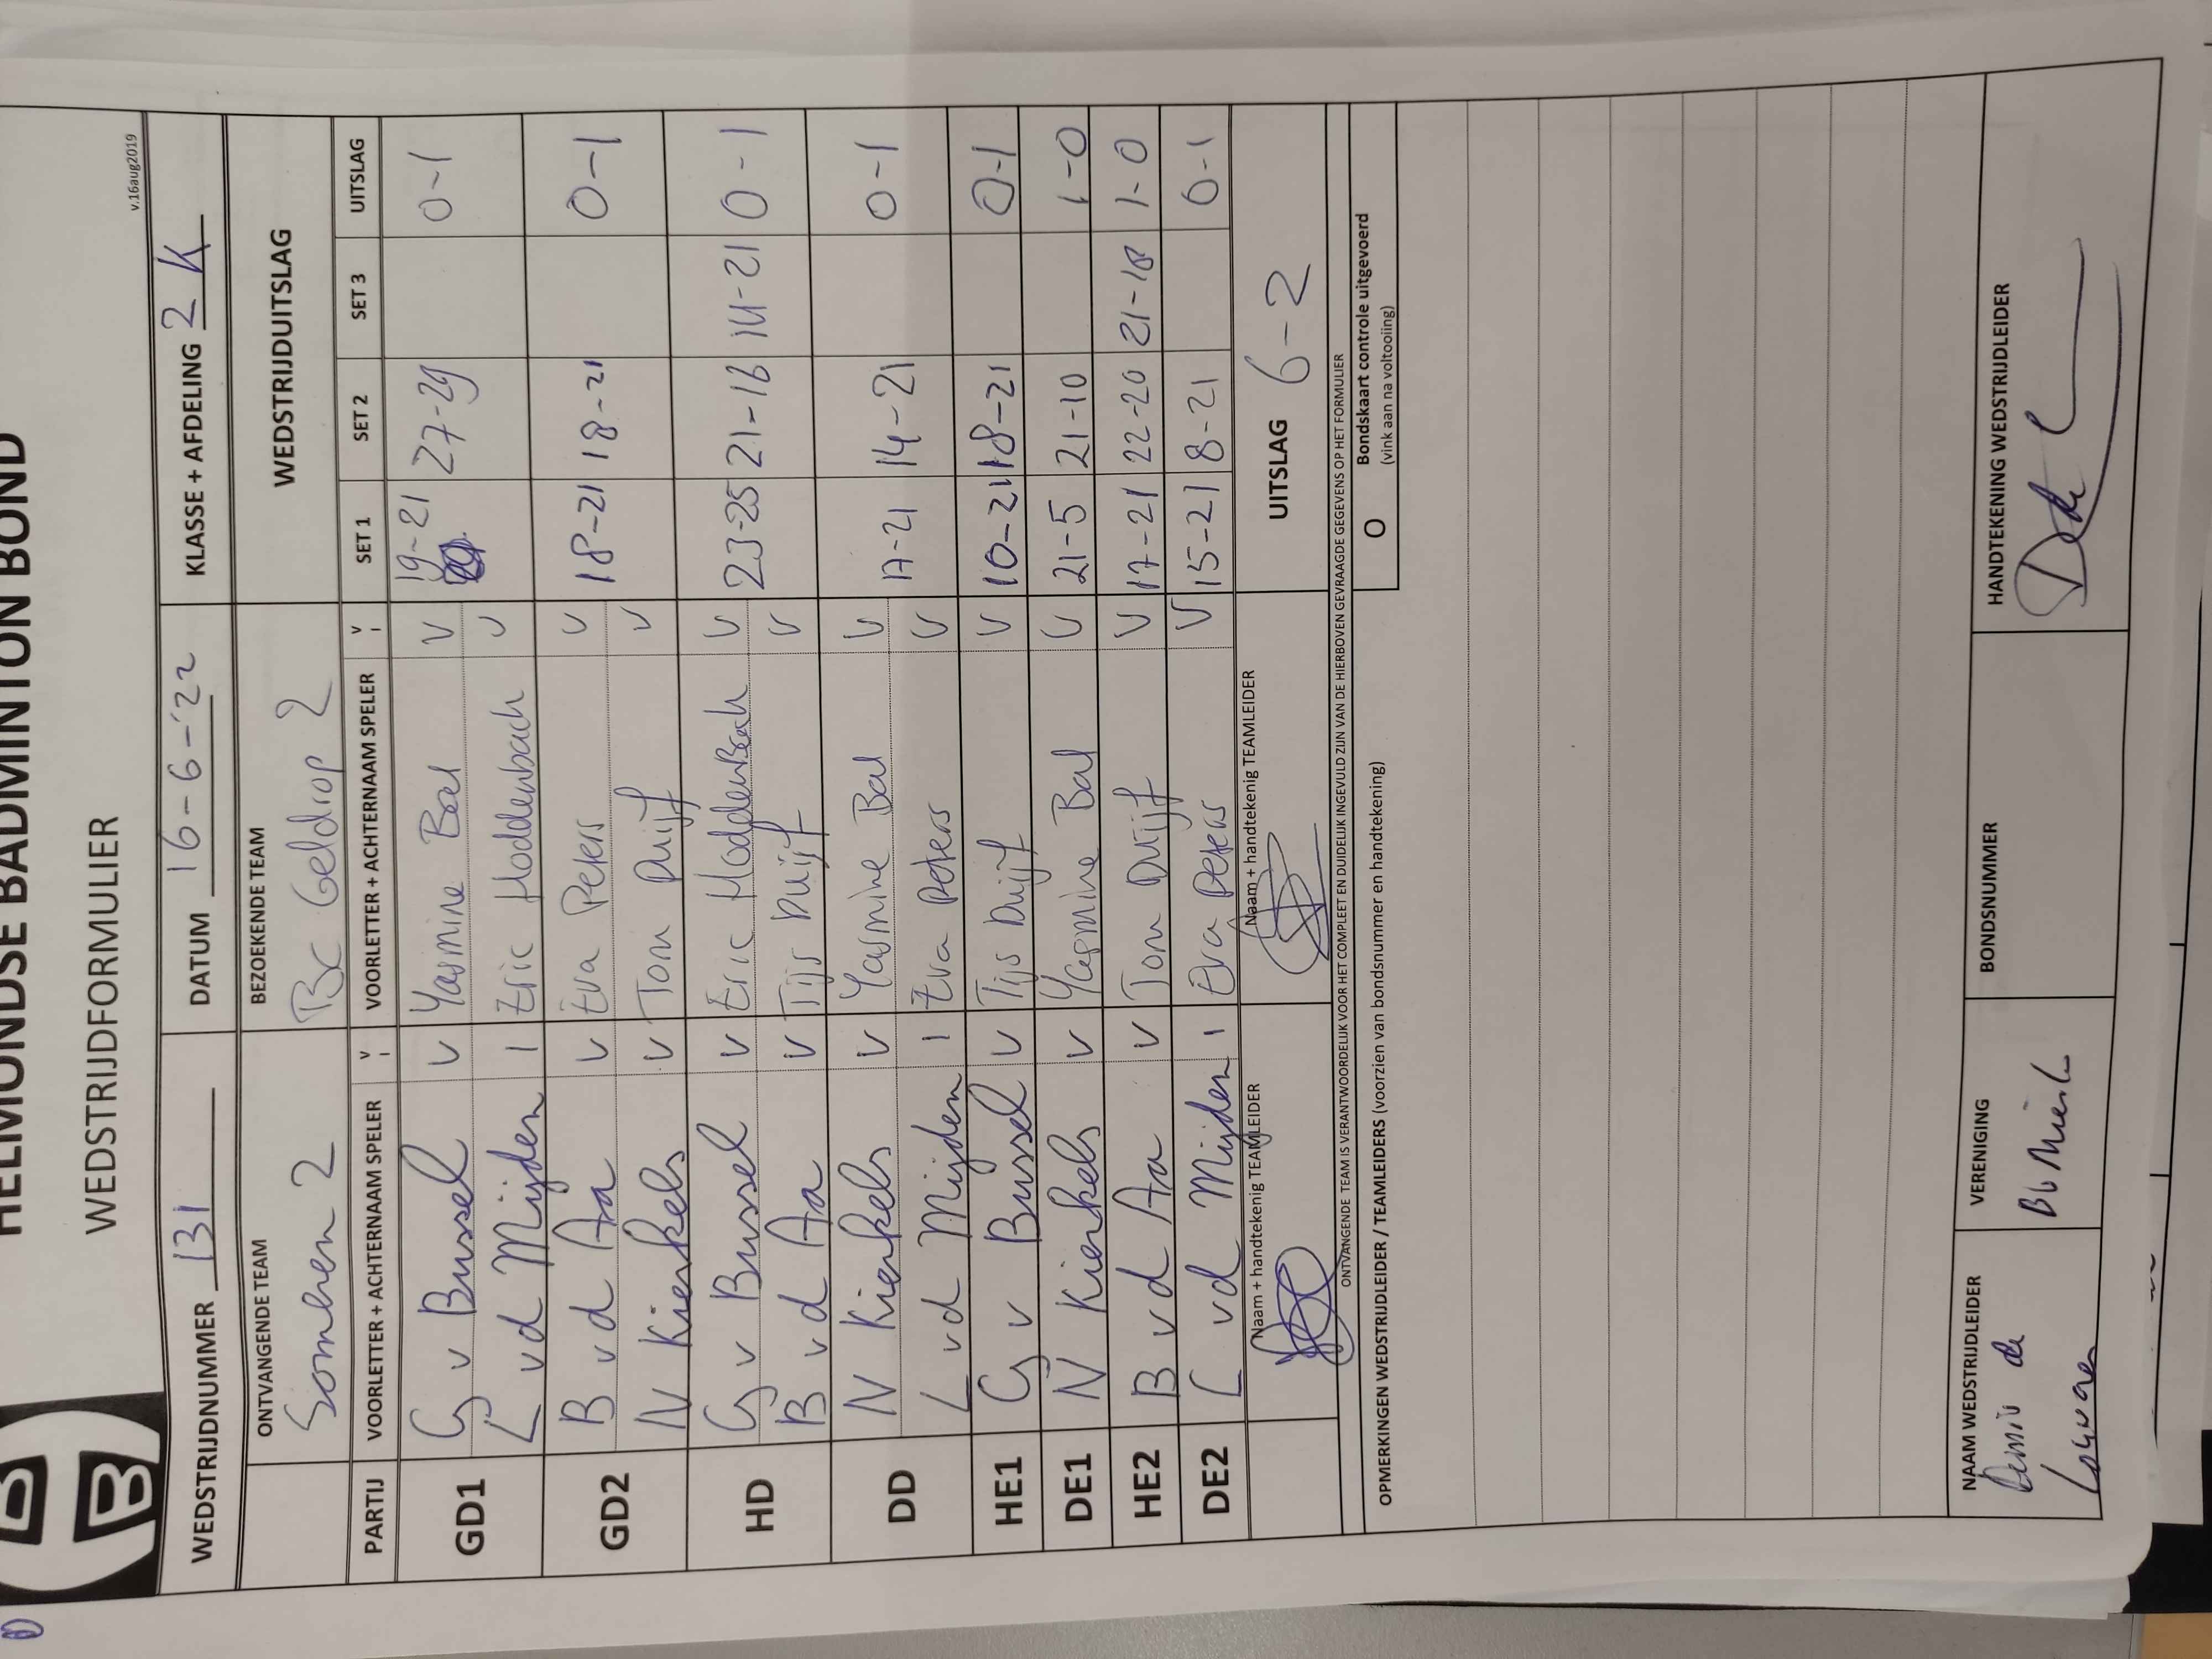 HELMONDSE BADMINTON BOND
WEDSTRIJDFORMULIER
v.16aug2019
WEDSTRIJDNUMMER 131 DATUM 16-6-'22 KLASSE + AFDELING 2 K
ONTVANGENDE TEAM BEZOEKENDE TEAM WEDSTRIJDUITSLAG
Someren 2 BC Geldrop 2
PARTIJ VOORLETTER + ACHTERNAAM SPELER V I VOORLETTER + ACHTERNAAM SPELER V I SET 1 SET 2 SET 3 UITSLAG
GD1 G v Bussel V Yasmine Bal V 19-21 27-29 0-1
L vd Mijden I Eric Hoddenbach V
GD2 B vd Aa V Eva Peters V 18-21 18-21 0-1
N Kierkels V Tom Duijf V
HD G v Bussel V Eric Hoddenbach V 23-25 21-16 14-21 0-1
B vd Aa V Tijs Duijf V
DD N Kierkels V Yasmine Bal V 17-21 14-21 0-1
L vd Mijden I Eva Peters V
HE1 G v Bussel V Tijs Duijf V 10-21 18-21 0-1
DE1 N Kierkels V Yasmine Bal V 21-5 21-10 1-0
HE2 B vd Aa V Tom Duijf V 17-21 22-20 21-18 1-0
DE2 L vd Mijden I Eva Peters V 15-21 8-21 0-1
Naam + handtekenig TEAMLEIDER Naam + handtekenig TEAMLEIDER UITSLAG 6-2
ONTVANGENDE TEAM IS VERANTWOORDELIJK VOOR HET COMPLEET EN DUIDELIJK INGEVULD ZIJN VAN DE HIERBOVEN GEVRAAGDE GEGEVENS OP HET FORMULIER
O Bondskaart controle uitgevoerd
(vink aan na voltooiing)
OPMERKINGEN WEDSTRIJDLEIDER / TEAMLEIDERS (voorzien van bondsnummer en handtekening)
NAAM WEDSTRIJDLEIDER VERENIGING BONDSNUMMER HANDTEKENING WEDSTRIJDLEIDER
de